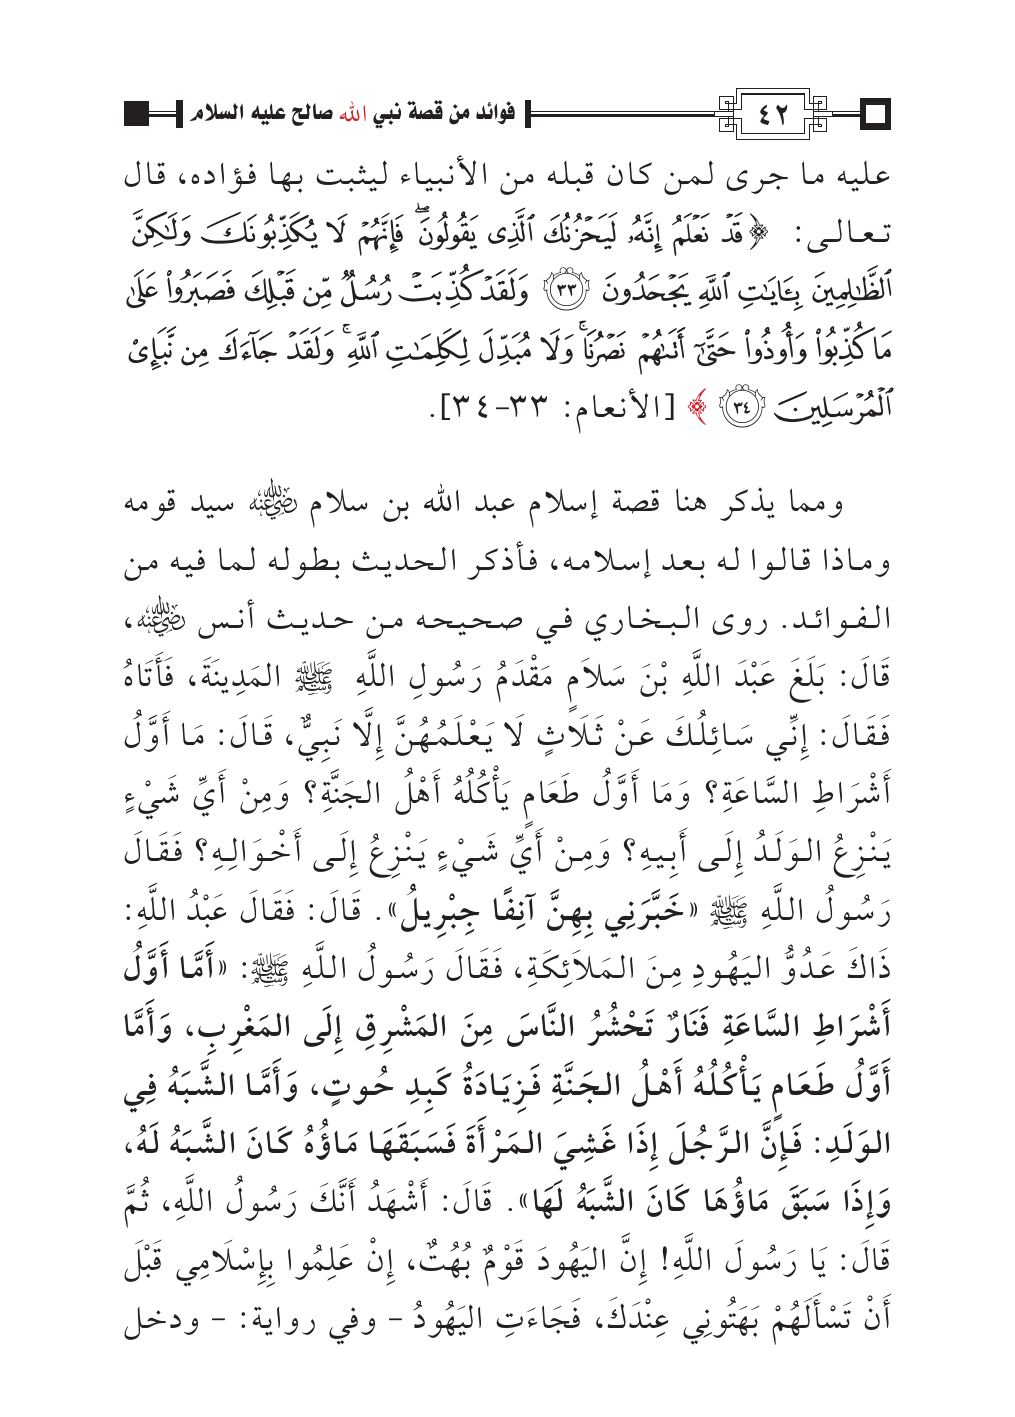 ٤٢ فوائد من قصة نبي الله صالح عليه السلام
عليه ما جرى لمن كان قبله من الأنبياء ليثبت بها فؤاده، قال
تعالى: ﴿قَدْ نَعْلَمُ إِنَّهُۥ لَيَحْزُنُكَ ٱلَّذِى يَقُولُونَۖ فَإِنَّهُمْ لَا يُكَذِّبُونَكَ وَلَٰكِنَّ
ٱلظَّٰلِمِينَ بِـَٔايَٰتِ ٱللَّهِ يَجْحَدُونَ ٣٣ وَلَقَدْ كُذِّبَتْ رُسُلٌ مِّن قَبْلِكَ فَصَبَرُوا۟ عَلَىٰ
مَا كُذِّبُوا۟ وَأُوذُوا۟ حَتَّىٰٓ أَتَىٰهُمْ نَصْرُنَاۚ وَلَا مُبَدِّلَ لِكَلِمَٰتِ ٱللَّهِۚ وَلَقَدْ جَآءَكَ مِن نَّبَإِى۟
ٱلْمُرْسَلِينَ ٣٤﴾ [الأنعام: ٣٣-٣٤].
ومما يذكر هنا قصة إسلام عبد الله بن سلام رضي الله عنه سيد قومه
وماذا قالوا له بعد إسلامه، فأذكر الحديث بطوله لما فيه من
الفوائد. روى البخاري في صحيحه من حديث أنس رضي الله عنه،
قَالَ: بَلَغَ عَبْدَ اللَّهِ بْنَ سَلاَمٍ مَقْدَمُ رَسُولِ اللَّهِ ﷺ المَدِينَةَ، فَأَتَاهُ
فَقَالَ: إِنِّي سَائِلُكَ عَنْ ثَلَاثٍ لَا يَعْلَمُهُنَّ إِلَّا نَبِيٌّ، قَالَ: مَا أَوَّلُ
أَشْرَاطِ السَّاعَةِ؟ وَمَا أَوَّلُ طَعَامٍ يَأْكُلُهُ أَهْلُ الجَنَّةِ؟ وَمِنْ أَيِّ شَيْءٍ
يَنْزِعُ الوَلَدُ إِلَى أَبِيهِ؟ وَمِنْ أَيِّ شَيْءٍ يَنْزِعُ إِلَى أَخْوَالِهِ؟ فَقَالَ
رَسُولُ اللَّهِ ﷺ «خَبَّرَنِي بِهِنَّ آنِفًا جِبْرِيلُ». قَالَ: فَقَالَ عَبْدُ اللَّهِ:
ذَاكَ عَدُوُّ اليَهُودِ مِنَ المَلاَئِكَةِ، فَقَالَ رَسُولُ اللَّهِ ﷺ: «أَمَّا أَوَّلُ
أَشْرَاطِ السَّاعَةِ فَنَارٌ تَحْشُرُ النَّاسَ مِنَ المَشْرِقِ إِلَى المَغْرِبِ، وَأَمَّا
أَوَّلُ طَعَامٍ يَأْكُلُهُ أَهْلُ الجَنَّةِ فَزِيَادَةُ كَبِدِ حُوتٍ، وَأَمَّا الشَّبَهُ فِي
الوَلَدِ: فَإِنَّ الرَّجُلَ إِذَا غَشِيَ المَرْأَةَ فَسَبَقَهَا مَاؤُهُ كَانَ الشَّبَهُ لَهُ،
وَإِذَا سَبَقَ مَاؤُهَا كَانَ الشَّبَهُ لَهَا». قَالَ: أَشْهَدُ أَنَّكَ رَسُولُ اللَّهِ، ثُمَّ
قَالَ: يَا رَسُولَ اللَّهِ! إِنَّ اليَهُودَ قَوْمٌ بُهُتٌ، إِنْ عَلِمُوا بِإِسْلَامِي قَبْلَ
أَنْ تَسْأَلَهُمْ بَهَتُونِي عِنْدَكَ، فَجَاءَتِ اليَهُودُ - وفي رواية: - ودخل